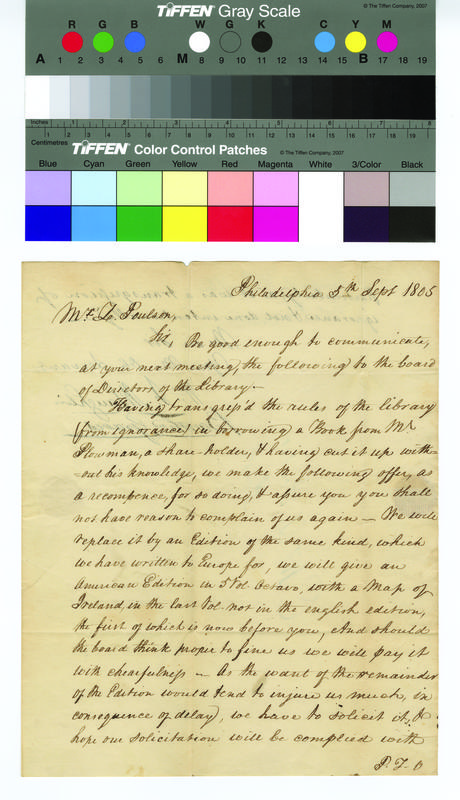 TIFFEN Gray Scale
© The Tiffen Company, 2007
R G B W G K C Y M
A 1 2 3 4 5 6 M 8 9 10 11 12 13 14 15 B 17 18 19
Inches 1 2 3 4 5 6 7 8
Centimetres 1 2 3 4 5 6 7 8 9 10 11 12 13 14 15 16 17 18 19
TIFFEN Color Control Patches
© The Tiffen Company, 2007
Blue Cyan Green Yellow Red Magenta White 3/Color Black
Philadelphia 5th Sept 1805
Mr. Z Poulson,
Sir, Be good enough to communicate,
at your next meeting, the following to the board
of Directors of the Library.—
Having transgress'd the rules of the library
(from ignorance) in borrowing a Book from Mr
Plowman, a share-holder, & having cut it up with=
=out his knowledge, we make the following offer, as
a recompence, for so doing, & assure you you shall
not have reason to complain of us again — We will
replace it by an Edition of the same kind, which
we have written to Europe for, we will give an
American Edition in 5 Vol. Octavo, with a Map of
Ireland, in the last Vol. not in the english edition,
the first of which is now before you, And should
the board think proper to fine us we will pay it
with chearfulness — As the want of the remainder
of the Edition would tend to injure us much, in
consequence of delay, we have to solicit it, &
hope our solicitation will be complied with
P. T. O